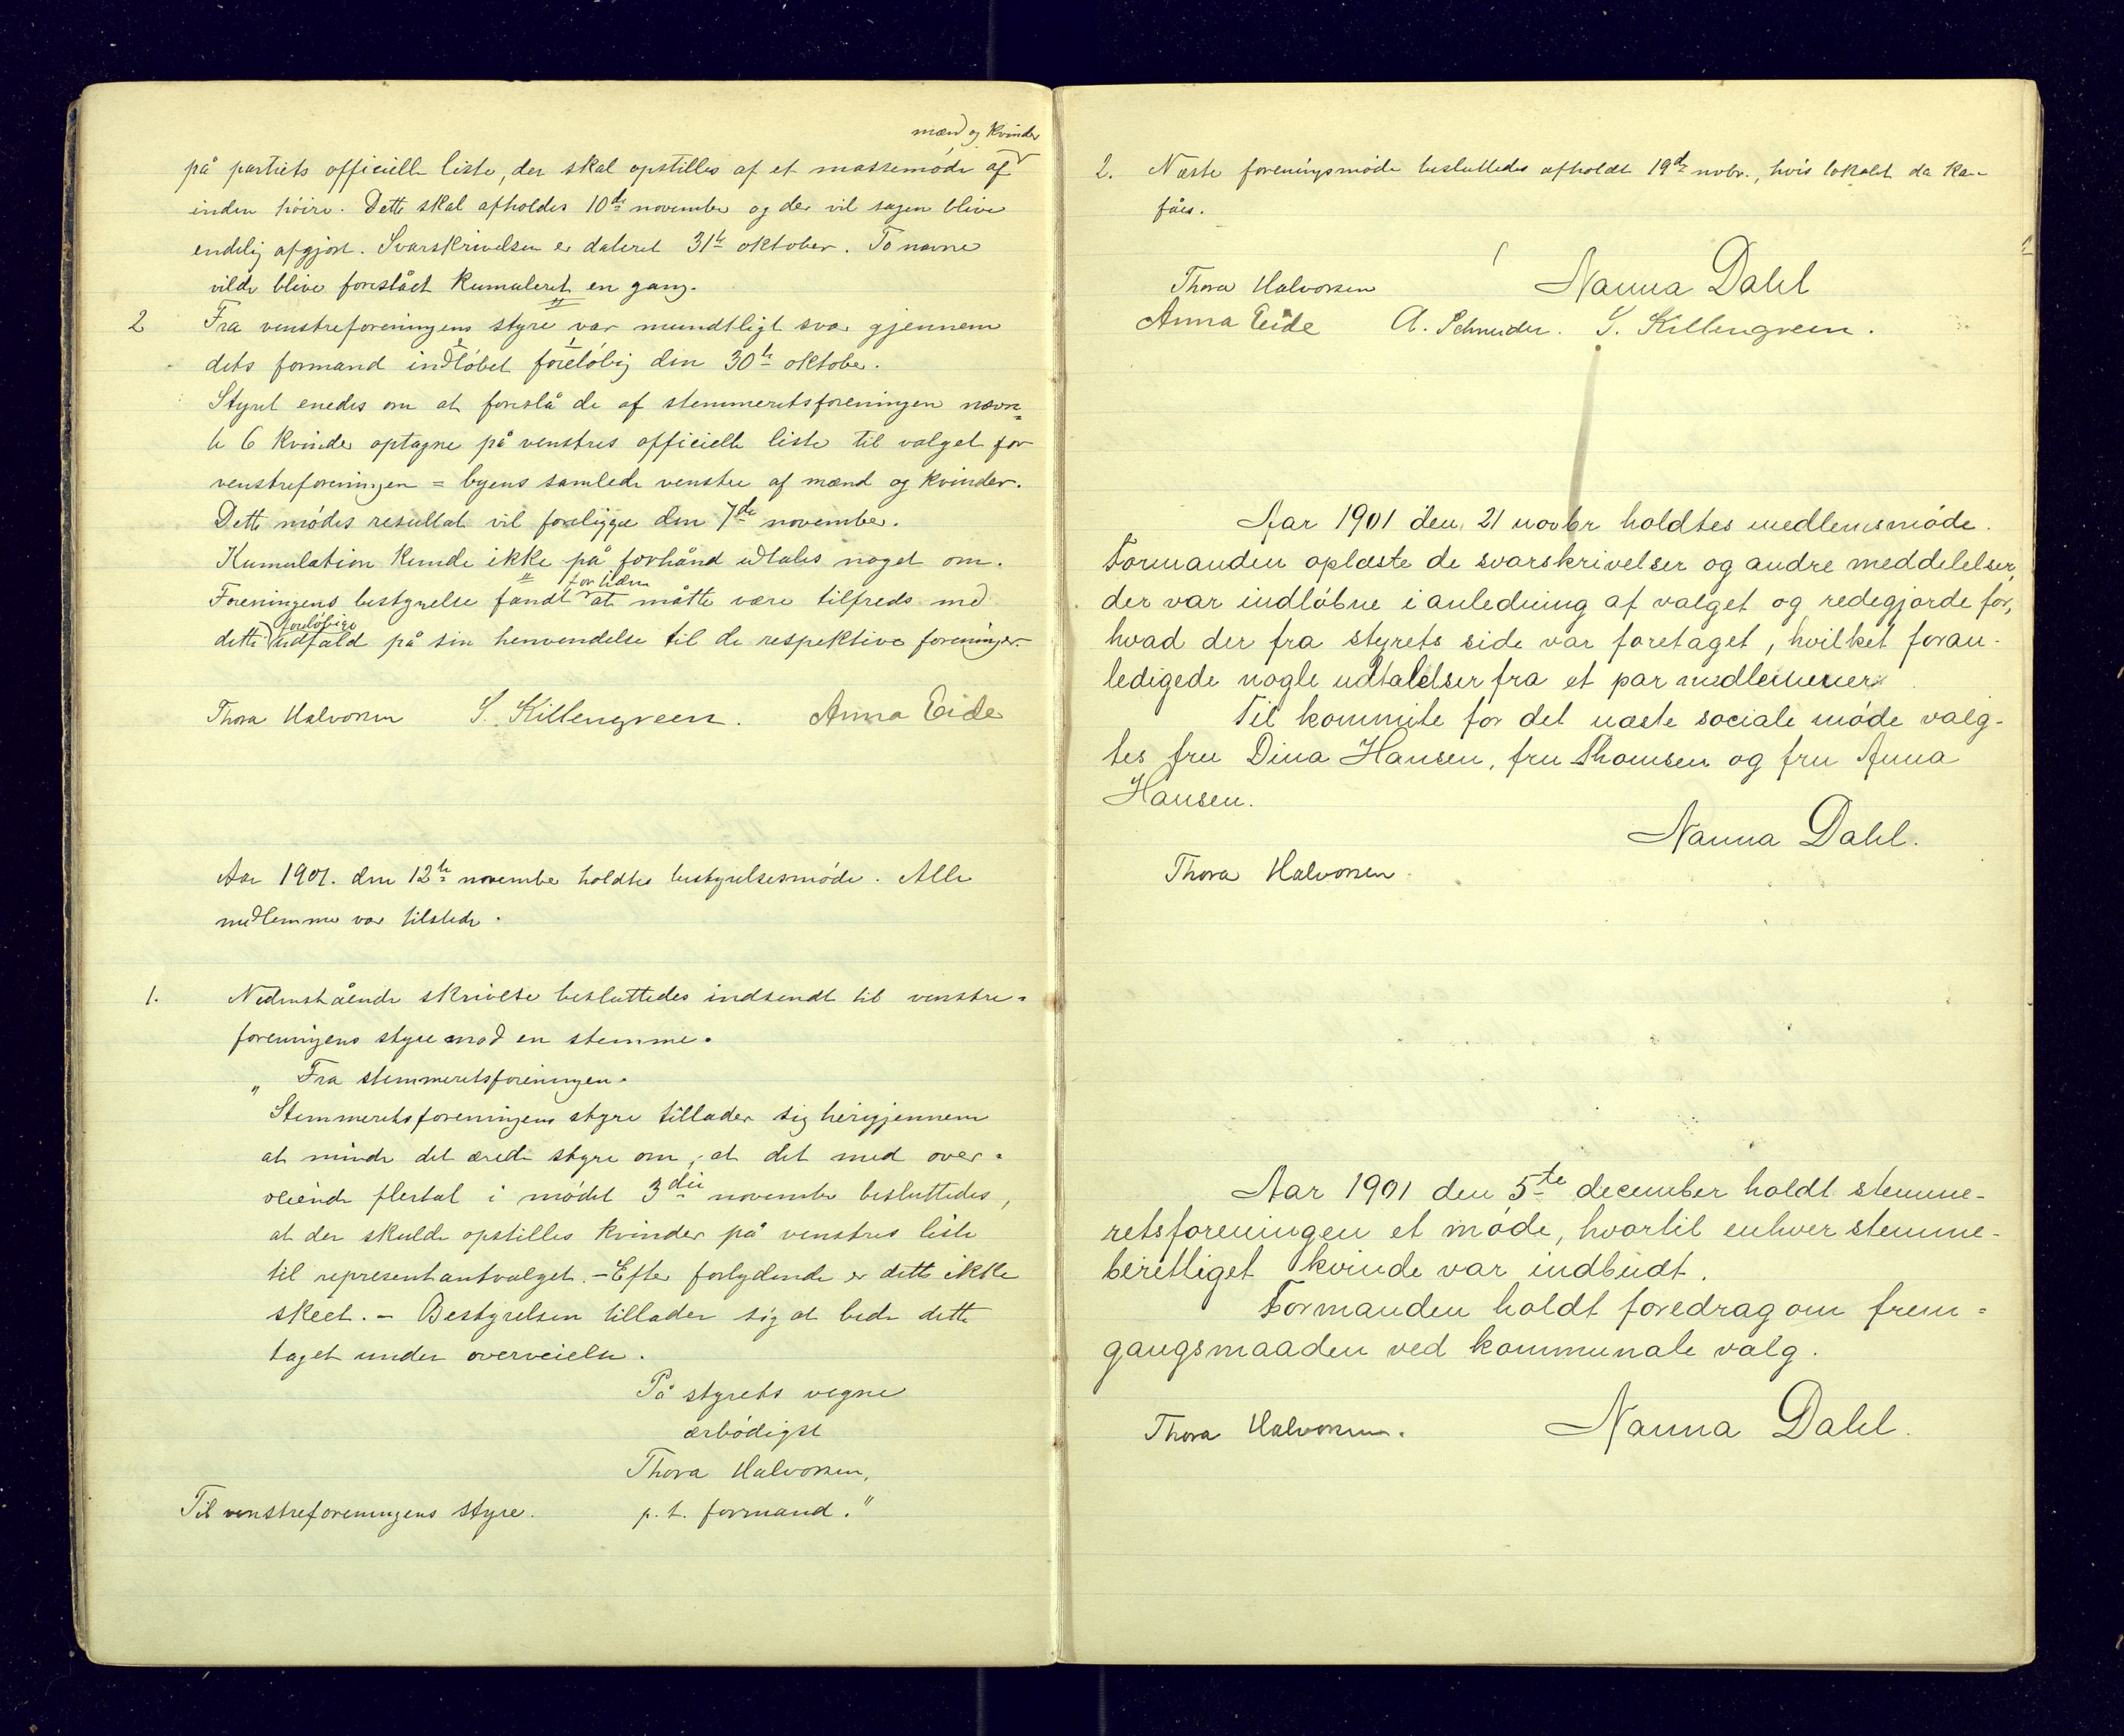 mænd og kvinder
på partiets officielle liste, der skal opstilles af et massemøde af
inden høire. Dette skal afholdes 10de november og der vil sagen blive
endelig afgjort. Svarskrivelsen er dateret 31te oktober. To navne
vilde blive foreslået kumuleret en gang.
2 Fra venstreforeningens styre var mundtligt svar gjennem
dets formand indløbet foreløbig den 30te oktober.
Styret enedes om at foreslå de af stemmeretsforeningen nævn=
te 6 kvinder optagne på venstres officielle liste til valget for
venstreforeningen = byens samlede venstre af mænd og kvinder.
Dette mødes resultat vil foreligge den 7de november.
Kumulation kunde ikke på forhånd udtales noget om.
for hæn
Foreningens bestyrelse fandt at måtte være tilfreds med
foreløbige
dette udfald på sin henvendelse til de respektive foreninger.
Thora Halvorsen S. Killengreen. Anna Eide
Aar 1901. den 12te november holdtes bestyrelsesmøde. Alle
medlemmer var tilstede.
1. Nedenstående skrivelse besluttedes indsendt til venstre=
foreningens styre mod en stemme.
„ Fra stemmeretsforeningen.
Stemmeretsforeningens styre tillader sig herigjennem
at minde det ærede styre om, at det med over=
veiende flertal i mødet 3die november besluttedes,
at der skulde opstilles kvinder på venstres liste
til representantvalget. – Efter forlydende er dette ikke
skeet. – Bestyrelsen tillader sig at bede dette
taget under overveielse.
På styrets vegne
ærbødigst
Thora Halvorsen,
Til venstreforeningens styre. p. t. formand."
2. Næste foreningsmøde besluttedes afholdt 19de novbr., hvis lokalet da kan
fåes.
Thora Halvorsen Nanna Dahl
Anna Eide A. Schneider. S. Killengreen.
Aar 1901 den 21 novbr holdtes medlemsmøde.
Formanden oplæste de svarskrivelser og andre meddelelser,
der var indløbne i anledning af valget og redegjorde for,
hvad der fra styrets side var foretaget, hvilket foran-
ledigede nogle udtalelser fra et par medlemmer
Til kommite for det næste sociale møde valg-
tes fru Dina Hansen, fru Thomsen og fru Anna
Hansen.
Nanna Dahl.
Thora Halvorsen.
Aar 1901 den 5te december holdt stemme-
retsforeningen et møde, hvortil enhver stemme-
berettiget kvinde var indbudt.
Formanden holdt foredrag om frem=
gangsmaaden ved kommunale valg.
Thora Halvorsen. Nanna Dahl.